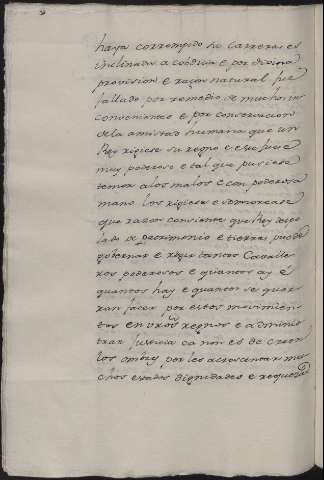 haya corrompido la carrera es
inclinada a codicia e por divina
provision e razon natural fue
fallado por remedio de muchos in
convenientes e por conservacion
de la amistad humana que un
Rey rigiese su regno e ese fuese
muy poderoso e tal que pusiese
temor a los malos e con poderosa
mano los rigiese e
que razon consiente que Rey despo
lado de patrimonio e tierras pueda
gobernar e regir tantos Cavalle
ros poderosos e quantos ay e
quantos hay e quantos se quer
ran facer por estos movimien
tos en vros regnos e adminis
trar justicia ca non es de creer
los omes por les acrescentar mu
chos estados dignidades e